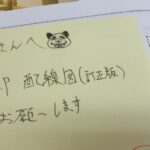 さんへ
配線図(訂正版)
お願〜します